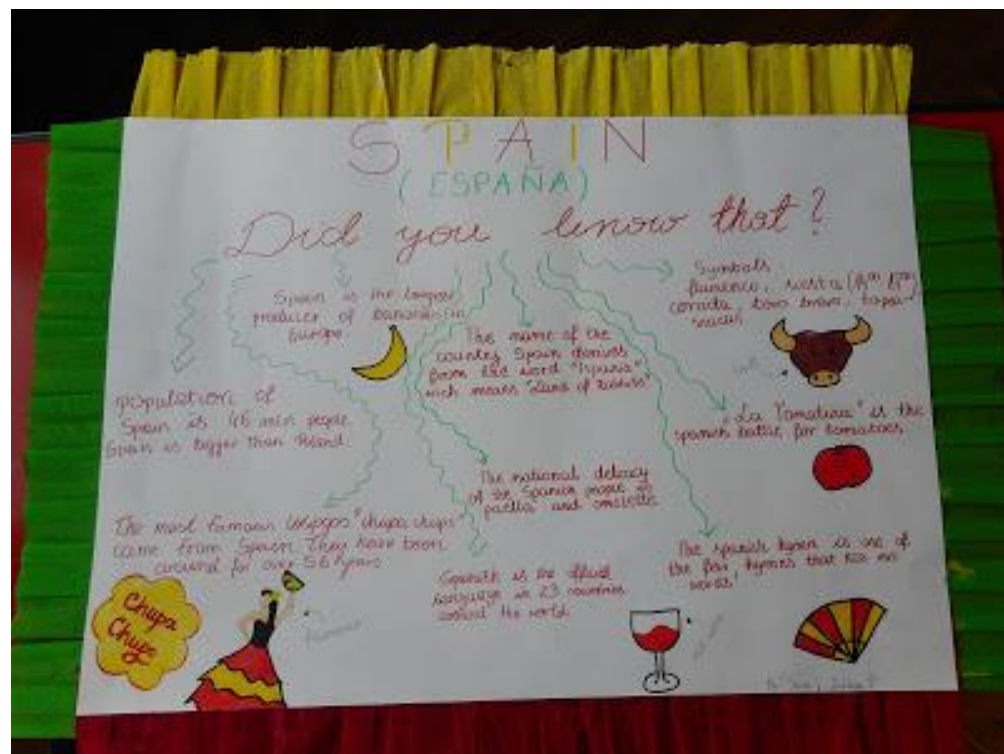 SPAIN
(ESPAÑA)
Did you know that?
Spain is the largest
producer of bananas in
Europe.
Symbols
flamenco, siesta
corrida, toro bravo, tapas-
snacks
The name of the
country Spain derives
from the word "Ispania"
wich means "Land of rabbits"
population of
Spain is 46 mln people
Spain is bigger than Poland.
"La Tomatina" is the
spanish battle for tomatoes
The national delicacy
of the Spanish people is
paella and omelette
The most famous lolipops "chupa chups"
came from Spain. They have been
around for over 56 years
Spanish is the official
language in 23 countries
around the world
The spanish hymn is one of
the few hymns that has no
words!
Chupa
Chups
flamenco